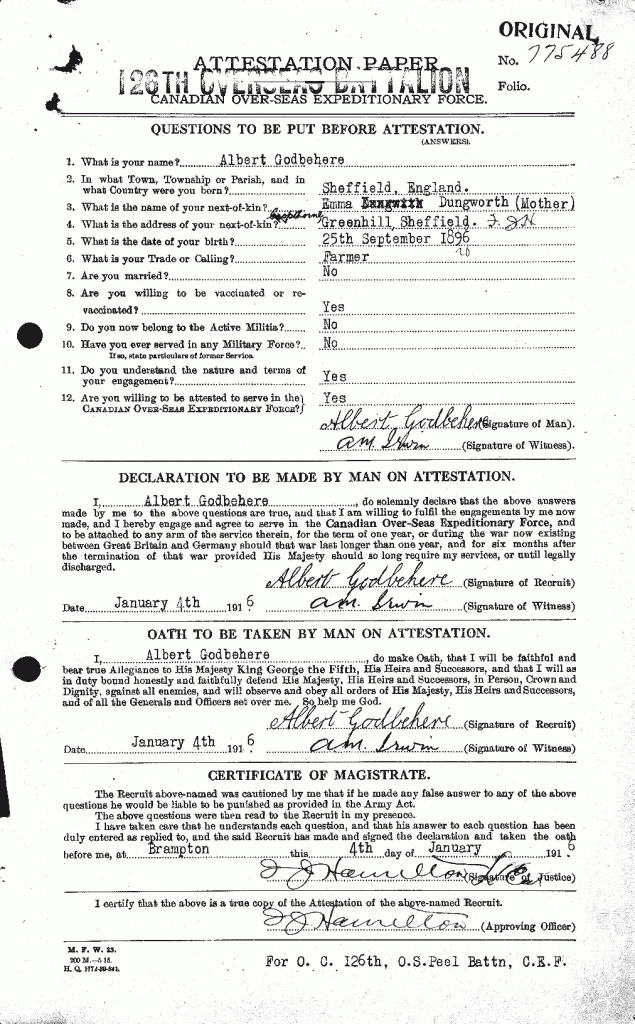 ORIGINAL
No. 775488
ATTESTATION PAPER.
Folio.
126TH OVERSEAS BATTALION
CANADIAN OVER-SEAS EXPEDITIONARY FORCE.
QUESTIONS TO BE PUT BEFORE ATTESTATION.
(ANSWERS).
1. What is your name? Albert Godbehere
2. In what Town, Township or Parish, and in
what Country were you born? Sheffield, England.
3. What is the name of your next-of-kin? Emma Dungworth (Mother)
4. What is the address of your next-of-kin? Greenhill, Sheffield. F.J.H
5. What is the date of your birth? 25th September 1896
6. What is your Trade or Calling? Farmer
7. Are you married? No
8. Are you willing to be vaccinated or re-
vaccinated? Yes
9. Do you now belong to the Active Militia? No
10. Have you ever served in any Military Force? No
If so, state particulars of former Service.
11. Do you understand the nature and terms of
your engagement? Yes
12. Are you willing to be attested to serve in the
CANADIAN OVER-SEAS EXPEDITIONARY FORCE? Yes
Albert Godbehere (Signature of Man).
A.M. Irwin (Signature of Witness).
DECLARATION TO BE MADE BY MAN ON ATTESTATION.
I, Albert Godbehere, do solemnly declare that the above answers
made by me to the above questions are true, and that I am willing to fulfil the engagements by me now
made, and I hereby engage and agree to serve in the Canadian Over-Seas Expeditionary Force, and
to be attached to any arm of the service therein, for the term of one year, or during the war now existing
between Great Britain and Germany should that war last longer than one year, and for six months after
the termination of that war provided His Majesty should so long require my services, or until legally
discharged.
Albert Godbehere (Signature of Recruit)
Date January 4th 1916 A.M. Irwin (Signature of Witness)
OATH TO BE TAKEN BY MAN ON ATTESTATION.
I, Albert Godbehere, do make Oath, that I will be faithful and
bear true Allegiance to His Majesty King George the Fifth, His Heirs and Successors, and that I will as
in duty bound honestly and faithfully defend His Majesty, His Heirs and Successors, in Person, Crown and
Dignity, against all enemies, and will observe and obey all orders of His Majesty, His Heirs and Successors,
and of all the Generals and Officers set over me. So help me God.
Albert Godbehere (Signature of Recruit)
Date January 4th 1916 A.M. Irwin (Signature of Witness)
CERTIFICATE OF MAGISTRATE.
The Recruit above-named was cautioned by me that if he made any false answer to any of the above
questions he would be liable to be punished as provided in the Army Act.
The above questions were then read to the Recruit in my presence.
I have taken care that he understands each question, and that his answer to each question has been
duly entered as replied to, and the said Recruit has made and signed the declaration and taken the oath
before me, at Brampton this 4th day of January 1916
F J Hamilton (Signature of Justice)
I certify that the above is a true copy of the Attestation of the above-named Recruit.
F J Hamilton (Approving Officer)
M. F. W. 23.
200 M.—8 15.
H. Q. 1772-39-841.
For O. C. 126th, O.S.Peel Battn, C.E.F.